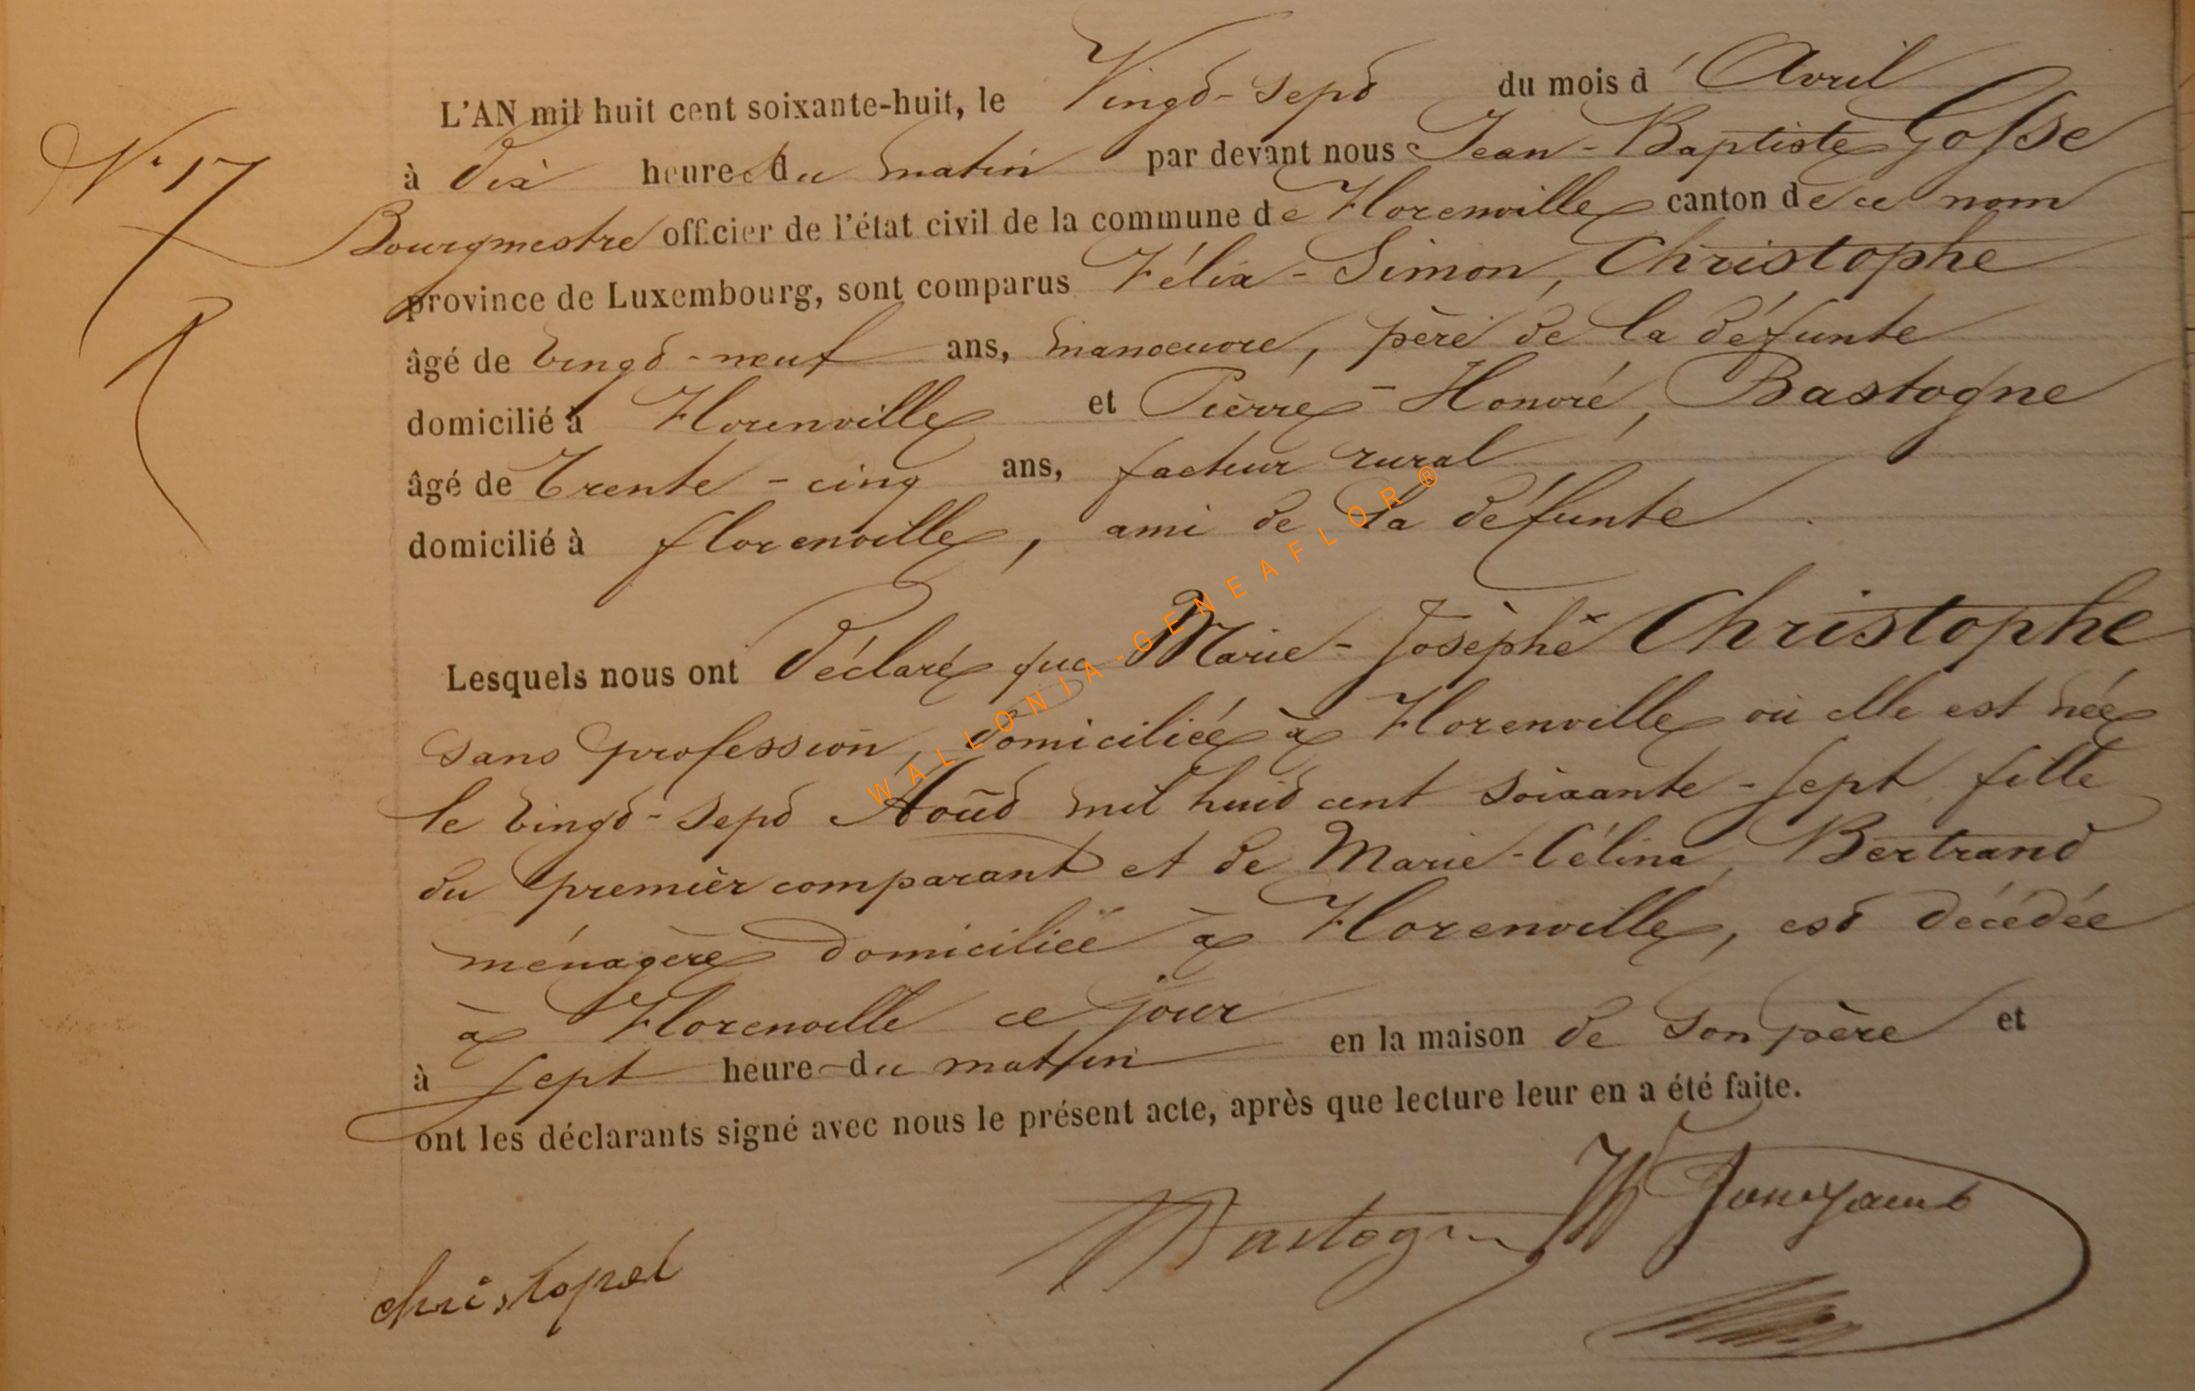 L'AN mil huit cent soixante-huit, le Vingt-Sept du mois d'Avril
N° 17
à Dix heures du matin par devant nous Jean-Baptiste Gosse
Bourgmestre officier de l'état civil de la commune de Florenville canton de ce nom
province de Luxembourg, sont comparus Félix-Simon, Christophe
âgé de Vingt-neuf ans, manoeuvre, père de la défunte
domicilié à Florenville et Pierre-Honoré, Bastogne
âgé de Trente-cinq ans, facteur rural
domicilié à florenville, ami de la défunte.
Lesquels nous ont Déclaré que Marie-Josèphe Christophe
sans profession, domiciliée à Florenville où elle est née
le Vingt-Sept Août mil huit cent soixante-sept fille
du premier comparant et de Marie-Célina, Bertrand
ménagère domiciliée à Florenville, est décédée
à Florenville ce jour
à sept heure du matin en la maison de son père et
ont les déclarants signé avec nous le présent acte, après que lecture leur en a été faite.
Bastogne
christophe
WALLONIA-GENEAFLOR®